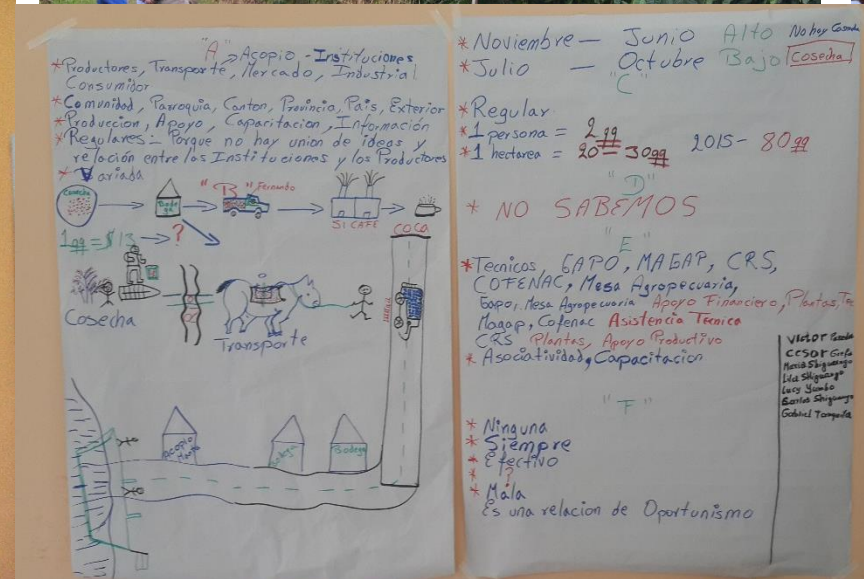 "A" → Acopio - Instituciones
* Productores, Transporte, Mercado, Industrial
Consumidor
* Comunidad, Parroquia, Canton, Provincia, Pais, Exterior
* Produccion, Apoyo, Capacitacion, Información
* Regulares:- Porque no hay union de ideas y
relación entre las Instituciones y los Productores
* Variada
"B" Fernando
Cosecha
Bodega
SICAFE
1qq = $13 → ?
COCA
Cosecha
Transporte
Acopio
Bodega
* Noviembre — Junio Alto No hay Cosecha
* Julio — Octubre Bajo Cosecha
"C"
* Regular
* 1 persona = 2qq
* 1 hectarea = 20 - 30qq 2015 - 80qq
"D"
* NO SABEMOS
"E"
* Tecnicos, GAPO, MAGAP, CRS,
COFENAC, Mesa Agropecuaria,
Gapo, Mesa Agropecuaria Apoyo Financiero, Plantas,
Magap, Cofenac Asistencia Tecnica
CRS Plantas, Apoyo Productivo
* Asociatividad, Capacitacion
"F"
* Ninguna
* Siempre
* Efectivo
* ?
* Mala
Es una relacion de Oportunismo
Victor
Cesar
Maria Shiguango
Lila Shiguango
Lucy Yumbo
Carlos Shiguango
Gabriel